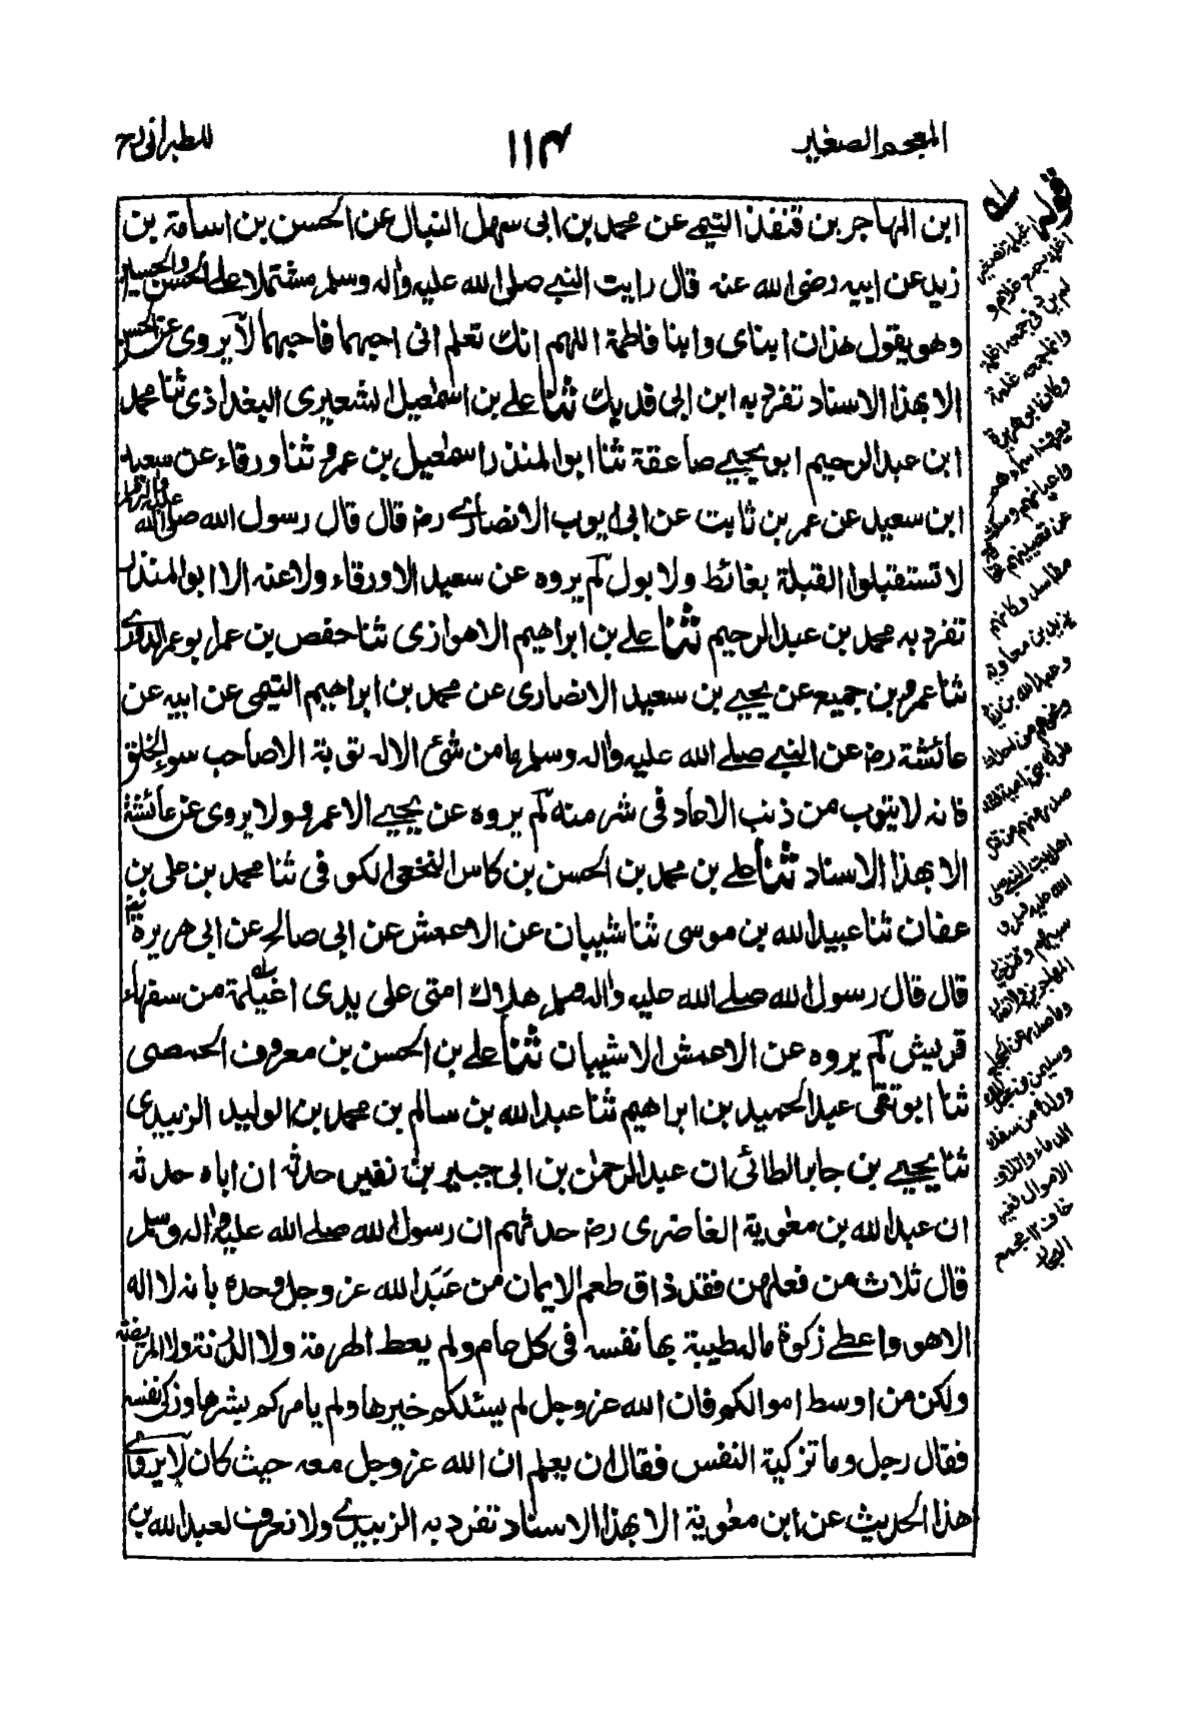 المعجم الصغير
١١٣
للطبرانى رح
ابن المهاجر بن قنفذ التيمى عن محمد بن ابى سهل النبال عن الحسن بن اسامة بن
زيد عن ابيه رضى الله عنه قال رايت النبى صلى الله عليه واله وسلم مشتملا على الحسن والحسين
وهو يقول هذان ابناى وابنا فاطمة اللهم انك تعلم انى احبهما فاحبهما لا يروى عن الحسن
الا بهذا الاسناد تفرد به ابن ابى فديك ثنا على بن اسمعيل الشعيرى البغداذى ثنا محمد
ابن عبد الرحيم ابو يحيى صاعقة ثنا ابو المنذر اسمعيل بن عمرو ثنا ورقاء عن سعيد
ابن سعيد عن عمر بن ثابت عن ابى ايوب الانصارى رض قال قال رسول الله صلى الله عليه واله وسلم
لا تستقبلوا القبلة بغائط ولا بول لم يروه عن سعيد الا ورقاء ولا عنه الا ابو المنذر
تفرد به محمد بن عبد الرحيم ثنا على بن ابراهيم الاهوازى ثنا حفص بن عمر ابو عمر الدورى
ثنا عمرو بن جميع عن يحيى بن سعيد الانصارى عن محمد بن ابراهيم التيمى عن ابيه عن
عائشة رض عن النبى صلى الله عليه واله وسلم ما من شئ الا له توبة الا صاحب سوء الخلق
فانه لا يتوب من ذنب الا عاد فى شر منه لم يروه عن يحيى الا عمرو ولا يروى عن عائشة
الا بهذا الاسناد ثنا على بن محمد بن الحسن بن كاس النخعى الكوفى ثنا محمد بن على بن
عفان ثنا عبيد الله بن موسى ثنا شيبان عن الاعمش عن ابى صالح عن ابى هريرة رض
قال قال رسول الله صلى الله عليه واله وسلم هلاك امتى على يدى اغيلمة من سفهاء
قريش لم يروه عن الاعمش الا شيبان ثنا على بن الحسن بن معروف الحمصى
ثنا ابو تقى عبد الحميد بن ابراهيم ثنا عبد الله بن سالم بن محمد بن الوليد الزبيدى
ثنا يحيى بن جابر الطائى ان عبد الرحمن بن ابى جبير بن نفير حدثه ان اباه حدثه
ان عبد الله بن معوية الغاضرى رض حدثهم ان رسول الله صلى الله عليه واله وسلم
قال ثلاث من فعلهن فقد ذاق طعم الايمان من عَبَدَ الله عز وجل وحده بانه لا اله
الا هو واعطى زكوة ماله طيبة بها نفسه فى كل عام ولم يعط الهرمة ولا الدرنة ولا المريضة
ولكن من اوسط اموالكم فان الله عز وجل لم يسئلكم خيرها ولم يامركم بشرها وزكى نفسه
فقال رجل وما تزكية النفس فقال ان يعلم ان الله عز وجل معه حيث كان لا يروى
هذا الحديث عن ابن معوية الا بهذا الاسناد تفرد به الزبيدى ولا نعرف لعبد الله بن
قوله اغيلمة تصغير
اغلمة جمع غلام و
وكان ابو هريرة
يعرف اسماءهم
واعيانهم وسكت
عن تعيينهم
مفاسد وكانهم
يزيد بن معاوية
وعبيد الله بن زياد
ونحوهم من احداث
ملوك بنى امية فقد
صدر منهم من قتل
اهل بيت النبى صلى
الله عليه وسلم و
سبيهم وقتل خيار
المهاجرين والانصار
وولده من سفك
الدماء واتلاف
الاموال فغير
خاف ١٢ مجمع
البحار